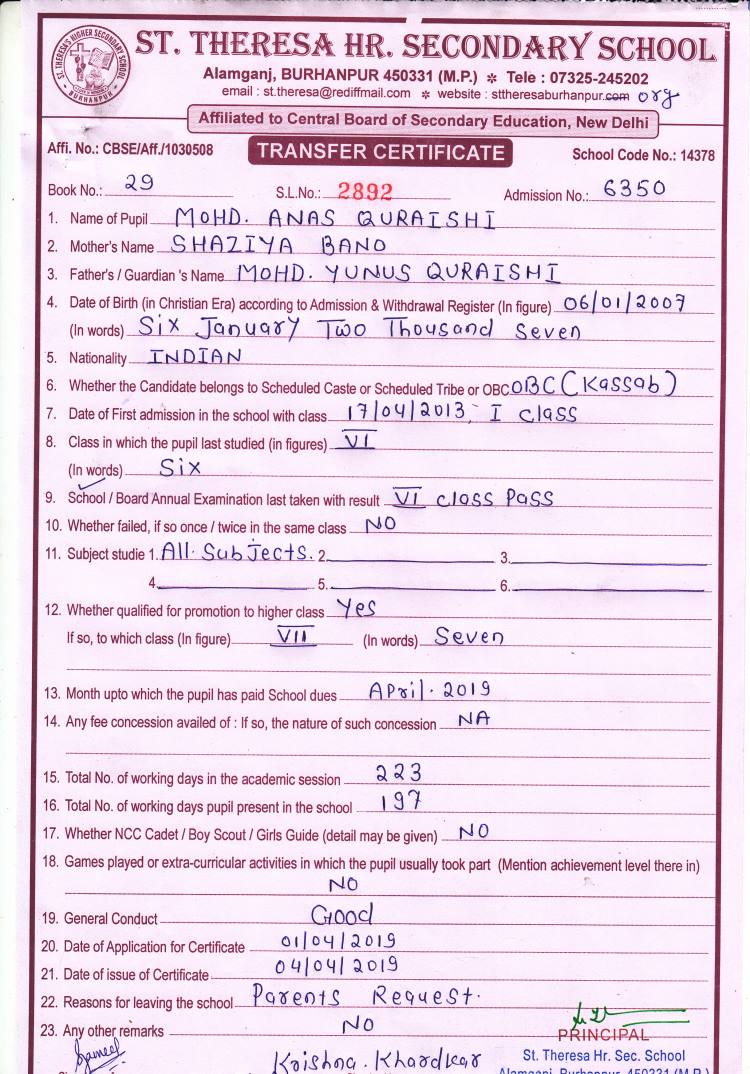 ST. THERESA'S HIGHER SECONDARY SCHOOL
BURHANPUR
ST. THERESA HR. SECONDARY SCHOOL
Alamganj, BURHANPUR 450331 (M.P.) * Tele : 07325-245202
email : st.theresa@rediffmail.com * website : sttheresaburhanpur.com org
Affiliated to Central Board of Secondary Education, New Delhi
Affi. No.: CBSE/Aff./1030508 TRANSFER CERTIFICATE School Code No.: 14378
Book No.: 29 S.L.No.: 2892 Admission No.: 6350
1. Name of Pupil MOHD. ANAS QURAISHI
2. Mother's Name SHAZIYA BANO
3. Father's / Guardian 's Name MOHD. YUNUS QURAISHI
4. Date of Birth (in Christian Era) according to Admission & Withdrawal Register (In figure) 06/01/2007
(In words) Six January Two Thousand Seven
5. Nationality INDIAN
6. Whether the Candidate belongs to Scheduled Caste or Scheduled Tribe or OBC OBC (Kassab)
7. Date of First admission in the school with class 17/04/2013, I class
8. Class in which the pupil last studied (in figures) VI
(In words) Six
9. School / Board Annual Examination last taken with result VI class Pass
10. Whether failed, if so once / twice in the same class NO
11. Subject studie 1. All Subjects. 2. 3.
4. 5. 6.
12. Whether qualified for promotion to higher class Yes
If so, to which class (In figure) VII (In words) Seven
13. Month upto which the pupil has paid School dues April. 2019
14. Any fee concession availed of : If so, the nature of such concession NA
15. Total No. of working days in the academic session 223
16. Total No. of working days pupil present in the school 197
17. Whether NCC Cadet / Boy Scout / Girls Guide (detail may be given) NO
18. Games played or extra-curricular activities in which the pupil usually took part (Mention achievement level there in)
NO
19. General Conduct Good
20. Date of Application for Certificate 01/04/2019
21. Date of issue of Certificate 04/04/2019
22. Reasons for leaving the school Parents Request.
23. Any other remarks NO
PRINCIPAL
Krishna. Khardkar
St. Theresa Hr. Sec. School
Alamganj, Burhanpur, 450331 (M.P.)